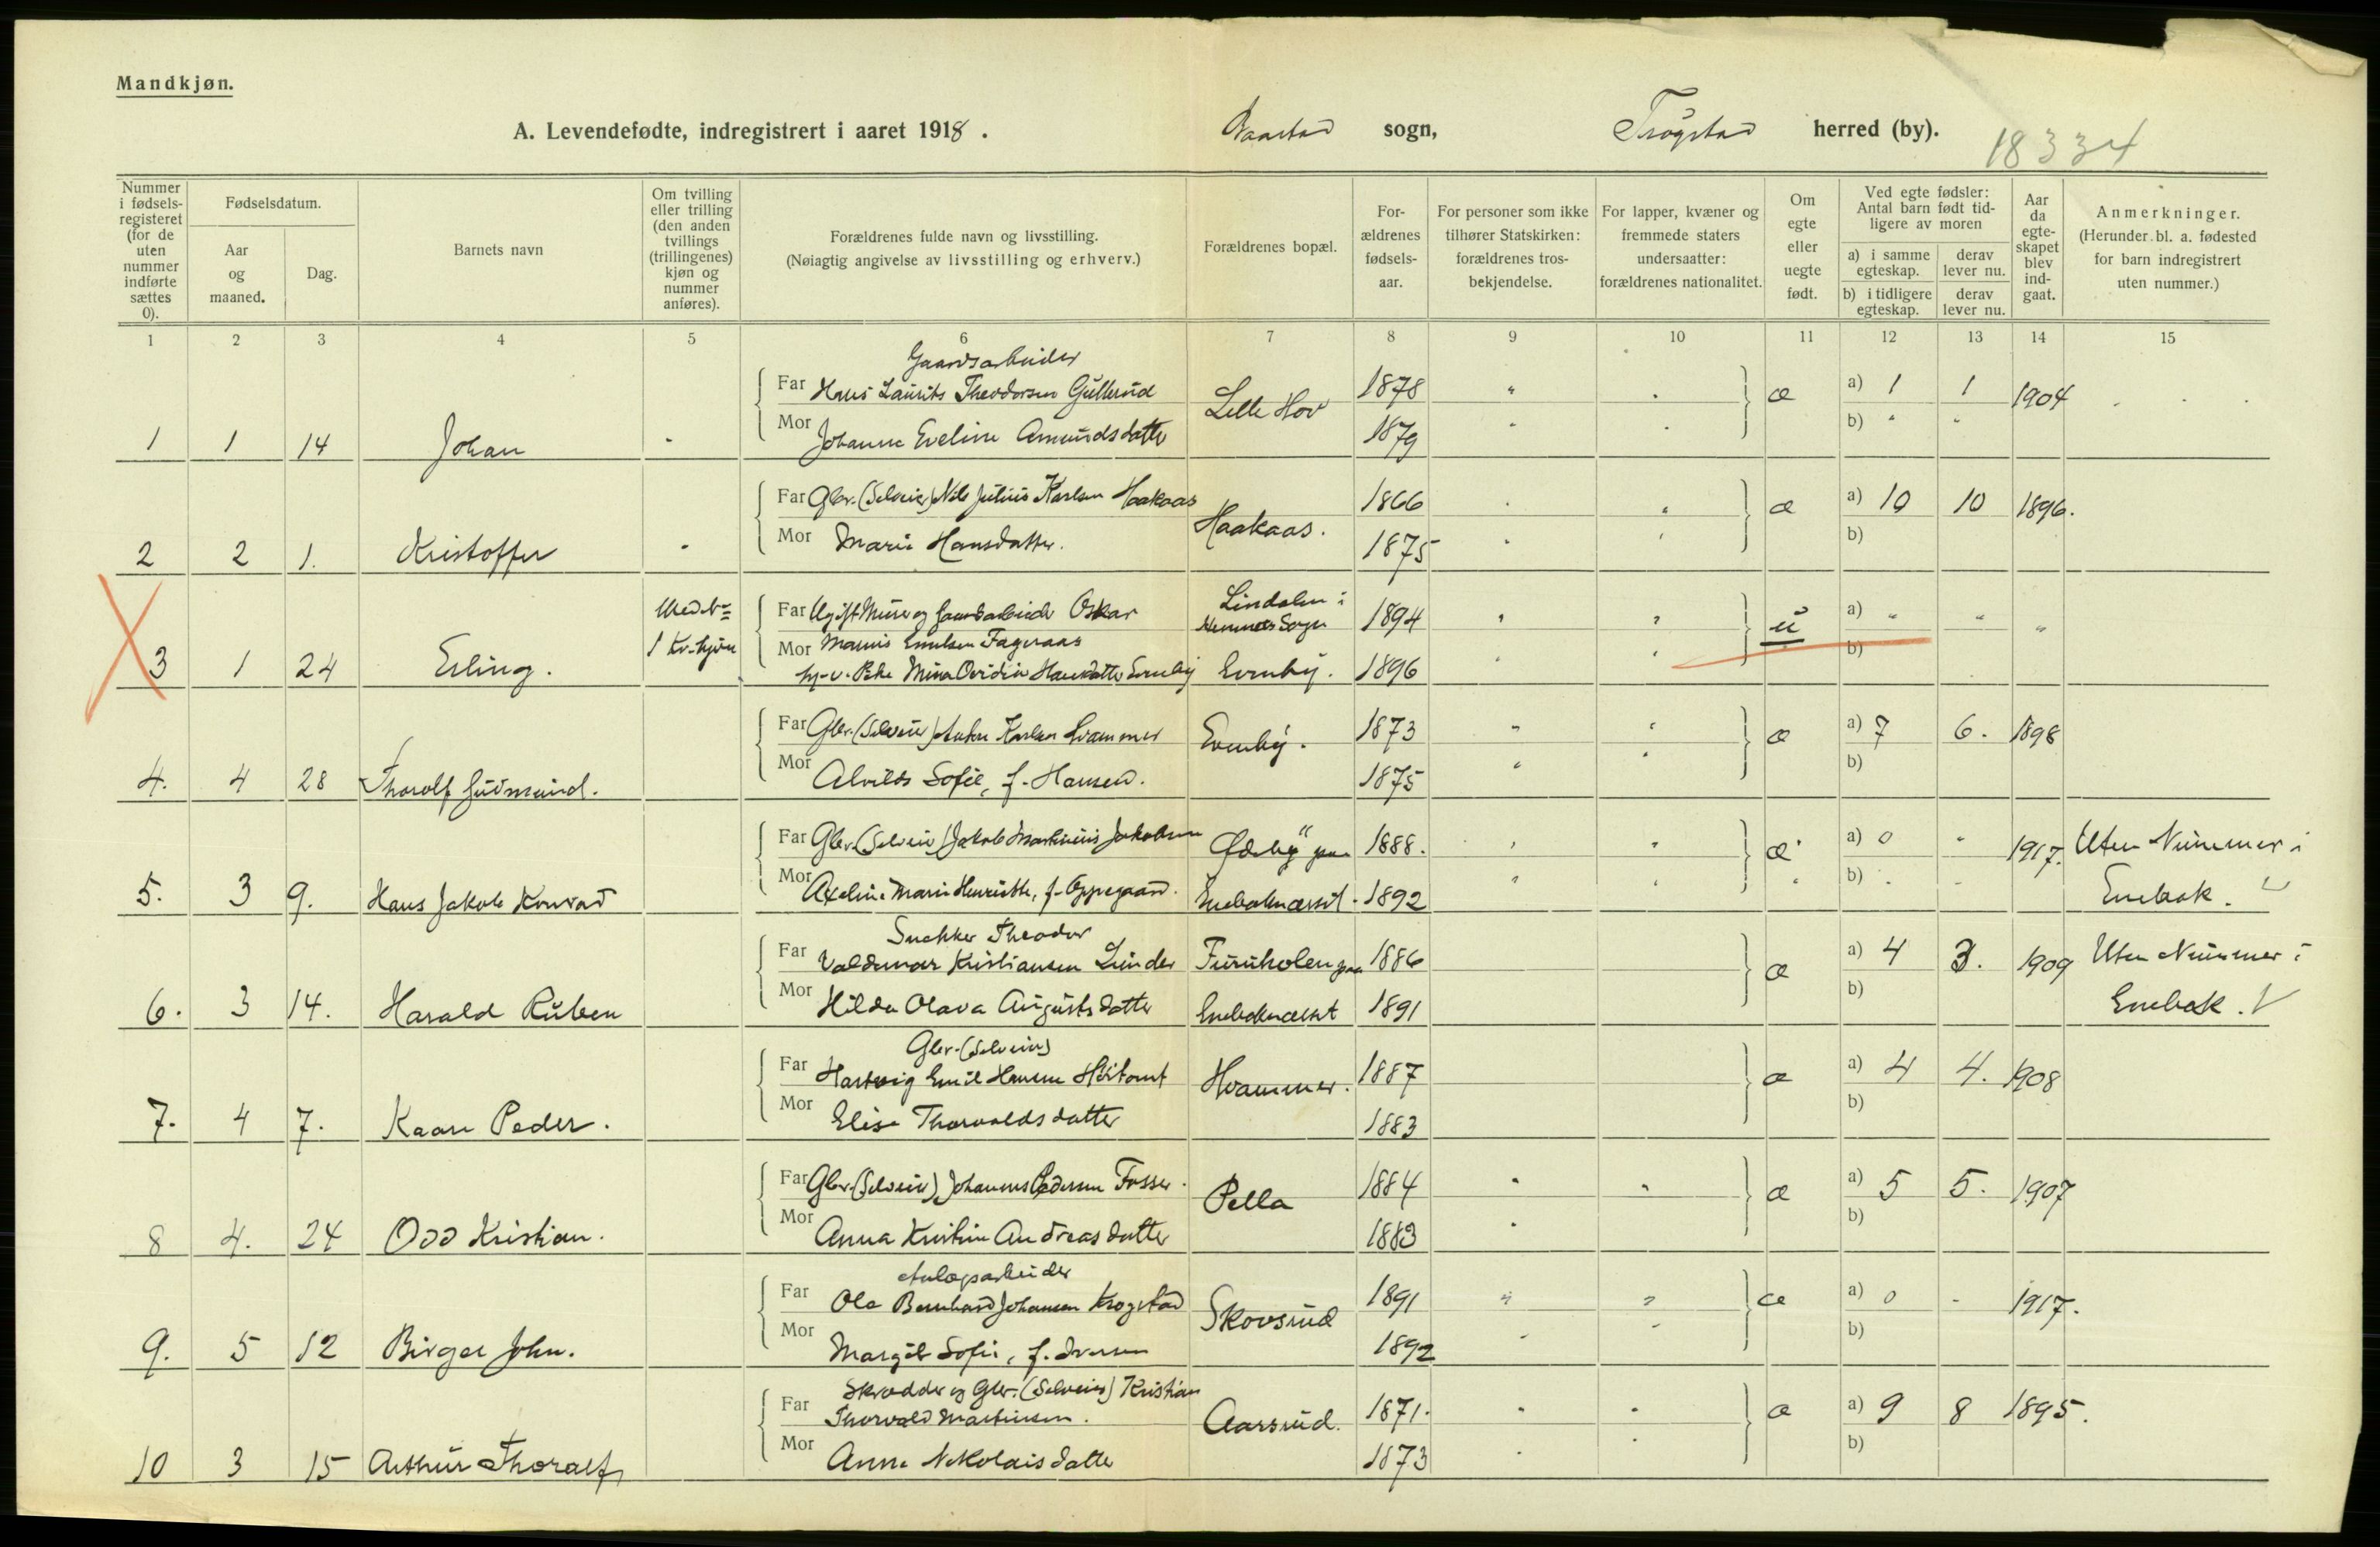 Mandkjøn.
A. Levendefødte, indregistrert i aaret 1918. Baastad sogn, Trøgstad herred (by).
18334
Nummer i fødselsregisteret (for de uten nummer indførte sættes 0).
Fødselsdatum.
Aar og maaned.
Dag.
Barnets navn
Om tvilling eller trilling (den anden tvillings (trillingenes) kjøn og nummer anføres).
Forældrenes fulde navn og livsstilling.
(Nøiagtig angivelse av livsstilling og erhverv.)
Forældrenes bopæl.
Forældrenes fødselsaar.
For personer som ikke tilhører Statskirken: forældrenes trosbekjendelse.
For lapper, kvæner og fremmede staters undersaatter: forældrenes nationalitet.
Om egte eller uegte født.
Ved egte fødsler: Antal barn født tidligere av moren
a) i samme egteskap. derav lever nu.
b) i tidligere egteskap. derav lever nu.
Aar da egteskapet blev indgaat.
Anmerkninger.
(Herunder bl. a. fødested for barn indregistrert uten nummer.)
1 2 3 4 5 6 7 8 9 10 11 12 13 14 15
Gaardsarbeider
Far Hans Laurits Theodorsen Gullerud Lille Hov 1878 " " æ a) 1 1 1904
1 1 14 Johan - Mor Johanne Eveline Amundsdatter 1879 " " b) " "
Far Gbr. (Selveier) Nils Julius Karlsen Haakaas Haakaas. 1866 æ a) 10 10 1896.
2 2 1. Kristoffer - Mor Marie Hansdatter. 1875 b)
Med Nr 1 Kv-kjøn
Far Ugift Murer og Gaardsarbeider Oskar Lindalen i Hemnes Sogn 1894 " " u a) " " "
Mor Mauris Emilsen Fageraas b)
3 1 24 Erling. Mina Ovidia Hansdatter Evenby Evenby. 1896
Far Gbr. (Selveier) Anton Karlsen Hvammer Evenby. 1873 " " æ a) 7 6. 1898
4. 4 28 Thorolf Gudmund. Mor Alvilde Sofie, f. Hansen. 1875 " " b)
Far Gbr. (Selveier) Jakob Martinius Jakobsen paa 1888. æ a) 0 - 1917. Uten Nummer i
5. 3 9. Hans Jakob Konrad Mor Axeline Marie Henriette, f. Oppegaard. Enebaknæsset. 1892 b) Enebak.
Snekker Theodor
Far Valdemar Kristiansen Lunder Furuholen paa 1886 æ a) 4 3. 1909 Uten Nummer i
6. 3 14. Harald Ruben Mor Hilda Olava Augustsdatter Enebaknæsset 1891 b) Enebak. V
Gbr. (Selveier)
Far Hartvig Emil Hansen Høitomt Hvammer. 1887 æ a) 4 4. 1908
7. 4 7. Kaare Peder. Mor Elise Thorvaldsdatter 1883 b)
Far Gbr. (Selveier) Johannes Pedersen Fosser. Pella 1884 " " æ a) 5 5. 1907
8 4. 24 Odd Kristian. Mor Anna Kristine Andreasdatter 1883 b)
Anlægsarbeider
Far Ole Bernhard Johansen Krogstad Skovsrud 1891 " " æ a) 0 - 1917.
9. 5 12 Birger John. Mor Margit Sofie, f. Iversen 1892 b)
Skrædder og Gbr. (Selveier) Kristian
Far Thorvald Martinsen. Aarsrud. 1871. æ a) 9 8 1895.
10 3 15 Arthur Thoralf Mor Anne Nikolaisdatter 1873 b)